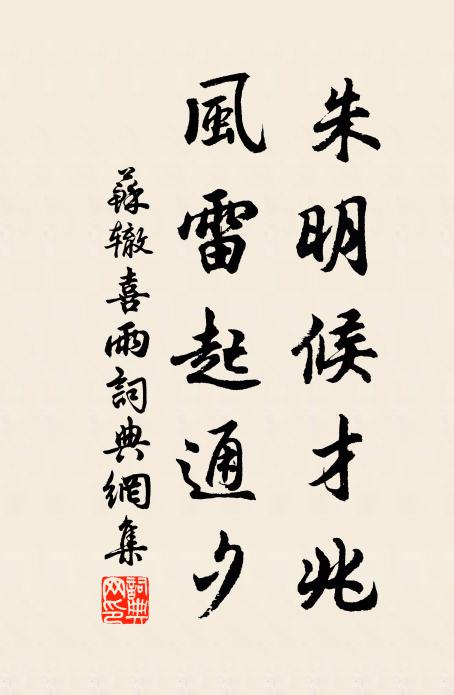 朱明候才兆
風雷起通夕
蘇辙喜雨詞典網集
詞典網印